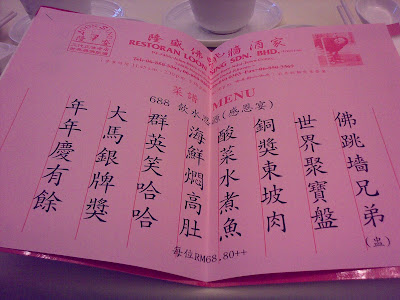 隆盛佛跳牆酒家
RESTORAN LOON SING SDN. BHD.
菜譜 MENU
688 飲水思源(感恩宴)
佛跳墙兄弟(盅)
世界聚寶盤
銅獎東坡肉
酸菜水煮魚
海鮮燜高肚
群英笑哈哈
大馬銀牌獎
年年慶有餘
每位RM68.80++